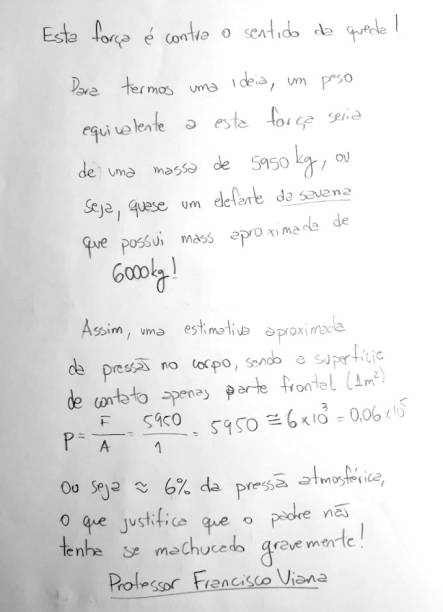 Esta força é contra o sentido da queda!
Para termos uma ideia, um peso
equivalente a esta força seria
de uma massa de 5950 kg, ou
seja, quase um elefante da savana
que possui mass aproximada de
6000kg!
Assim, uma estimativa aproximada
da pressão no corpo, sendo a superfície
de contato apenas parte frontal (1m²)
P = F/A = 5950/1 = 5950 ≅ 6x10³ = 0,06x10⁵
Ou seja ≈ 6% da pressão atmosférica,
o que justifica que o padre não
tenha se machucado gravemente!
Professor Francisco Viana